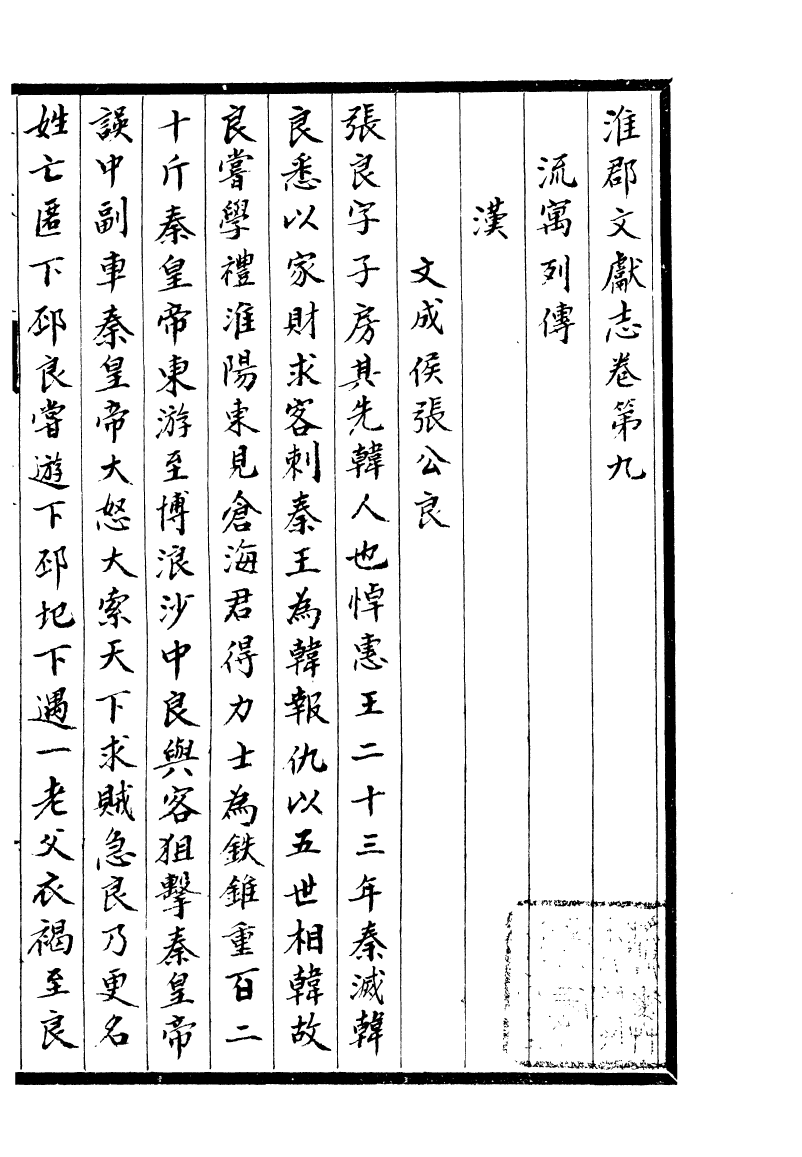 淮郡文獻志卷第九
流寓列傳
漢
文成侯張公良
張良字子房其先韓人也悼惠王二十三年秦滅韓
良悉以家財求客刺秦王為韓報仇以五世相韓故
良嘗學禮淮陽東見倉海君得力士為鉄錐重百二
十斤秦皇帝東游至博浪沙中良與客狙擊秦皇帝
誤中副車秦皇帝大怒大索天下求賊急良乃更名
姓亡匿下邳良嘗遊下邳圯下遇一老父衣褐至良